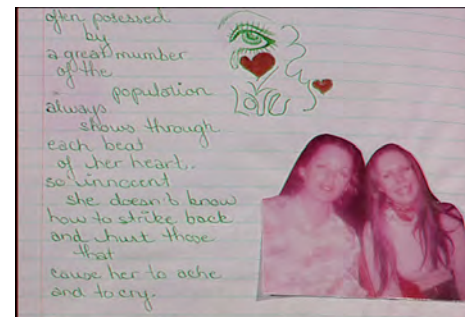 often posessed
by
a great mumber
of the
population
always
shows through
each beat
of her heart.
so innocent
she doesn't know
how to strike back
and hurt those
that
cause her to ache
and to cry.